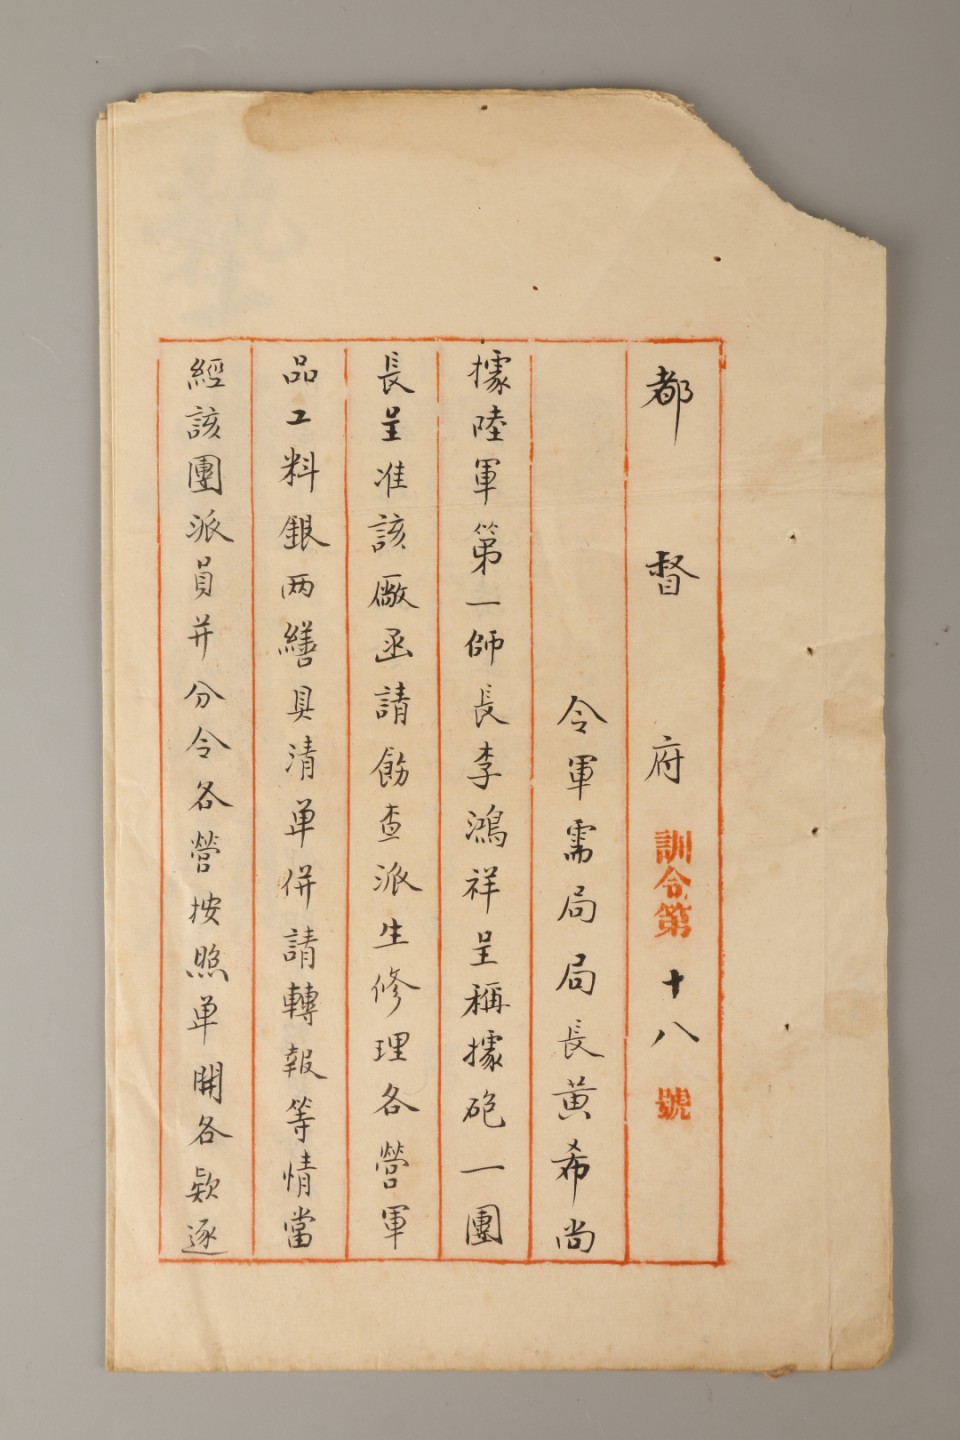 都督府訓令第十八號
令軍需局局長黃希尚
據陸軍第一師長李鴻祥呈稱據砲一團
長呈准該廠函請飭查派生修理各營軍
品工料銀两繕具清单併請轉報等情當
經該團派員并分令各營按照单開各欵逐